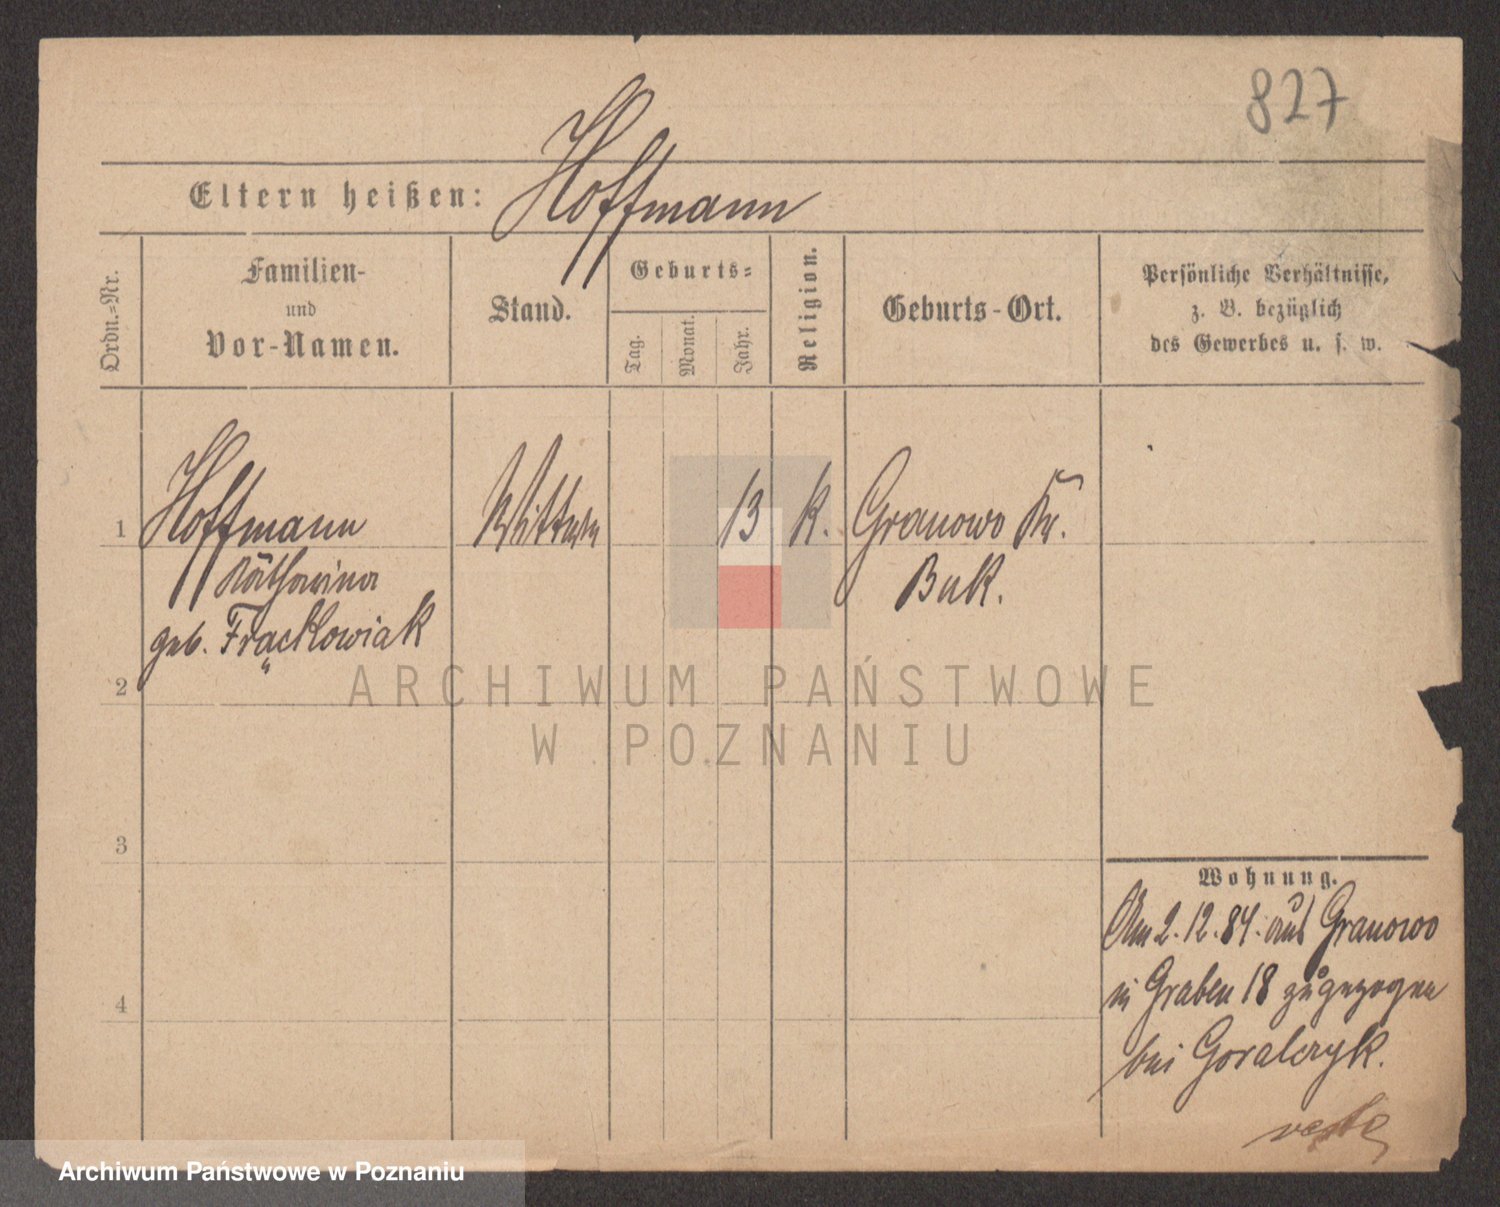 827
Eltern heißen: Hoffmann
Ordn.=Nr.
Familien-
und
Vor-Namen.
Stand.
Geburts=
Tag.
Monat.
Jahr.
Religion.
Geburts-Ort.
Persönliche Verhältnisse,
z. B. bezüglich
des Gewerbes u. s. w.
1 Hoffmann Wittwe 13 K. Granowo Kr.
Katharina Buk.
geb. Frąckowiak
2
ARCHIWUM PAŃSTWOWE
W POZNANIU
3
Wohnung.
Am 2.12.84. aus Granowo
in Graben 18 zugezogen
4
bei Goralczyk.
Archiwum Państwowe w Poznaniu